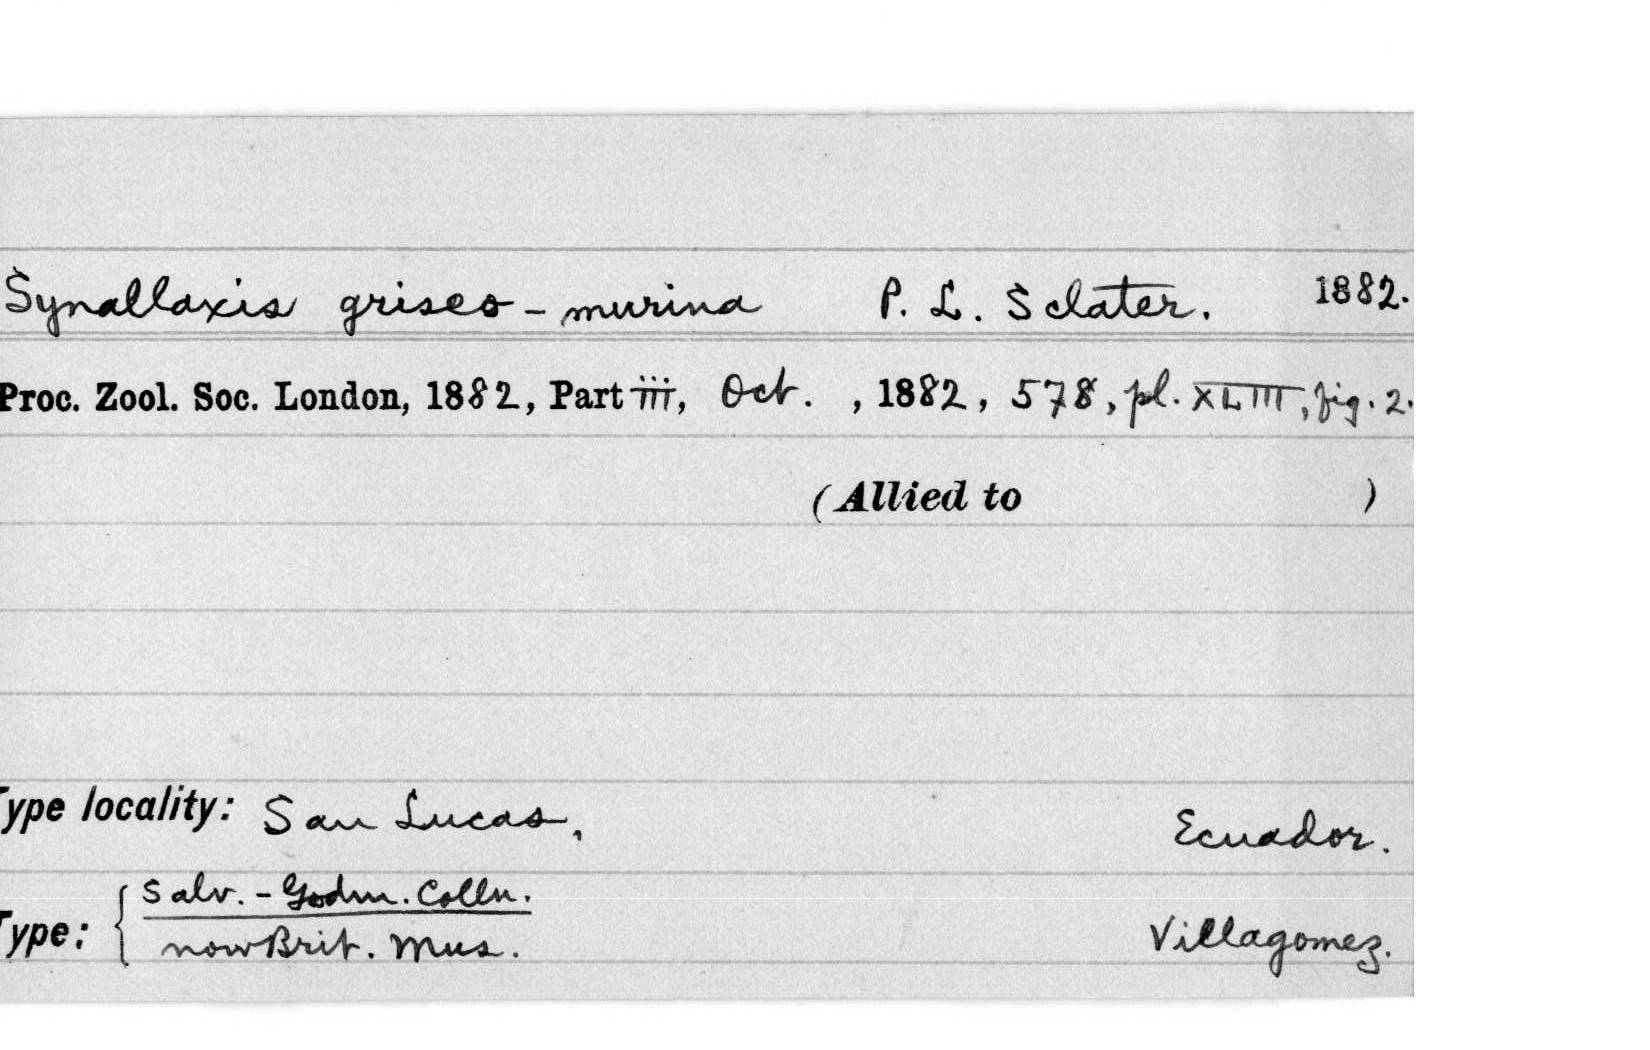 Synallaxis griseo-murina P. L. Sclater. 1882.
Proc. Zool. Soc. London, 1882, Part iii, Oct. , 1882, 578, pl. XLIII, fig. 2.
(Allied to )
Type locality: San Lucas, Ecuador.
Salv.-Godm. Colln.
Type: { now Brit. Mus. Villagomez.